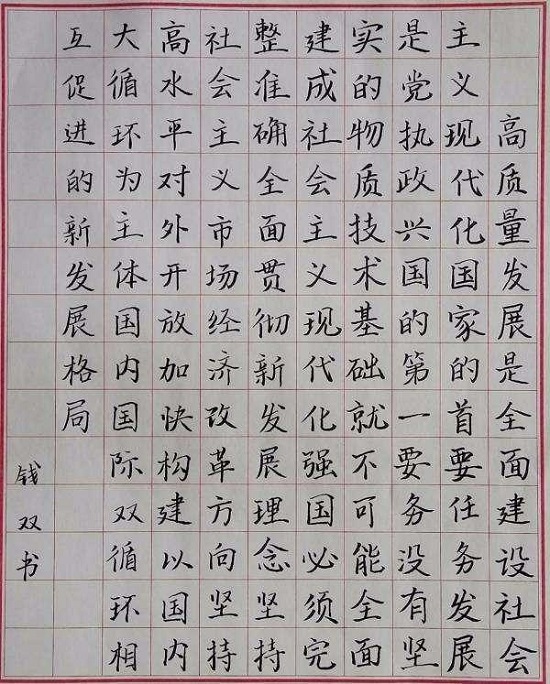 高质量发展是全面建设社会
主义现代化国家的首要任务发展
是党执政兴国的第一要务没有坚
实的物质技术基础就不可能全面
建成社会主义现代化强国必须完
整准确全面贯彻新发展理念坚持
社会主义市场经济改革方向坚持
高水平对外开放加快构建以国内
大循环为主体国内国际双循环相
互促进的新发展格局
钱双书